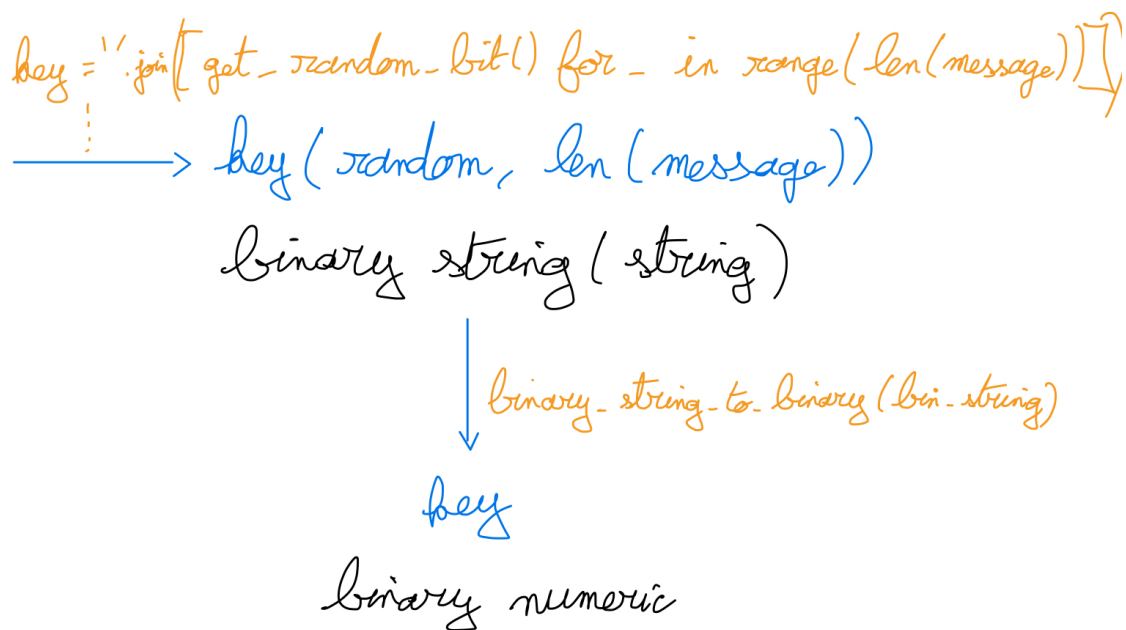 key = ''.join([get_random_bit() for _ in range(len(message))])
key(random, len(message))
binary string(string)
binary_string_to_binary(bin_string)
key
binary numeric